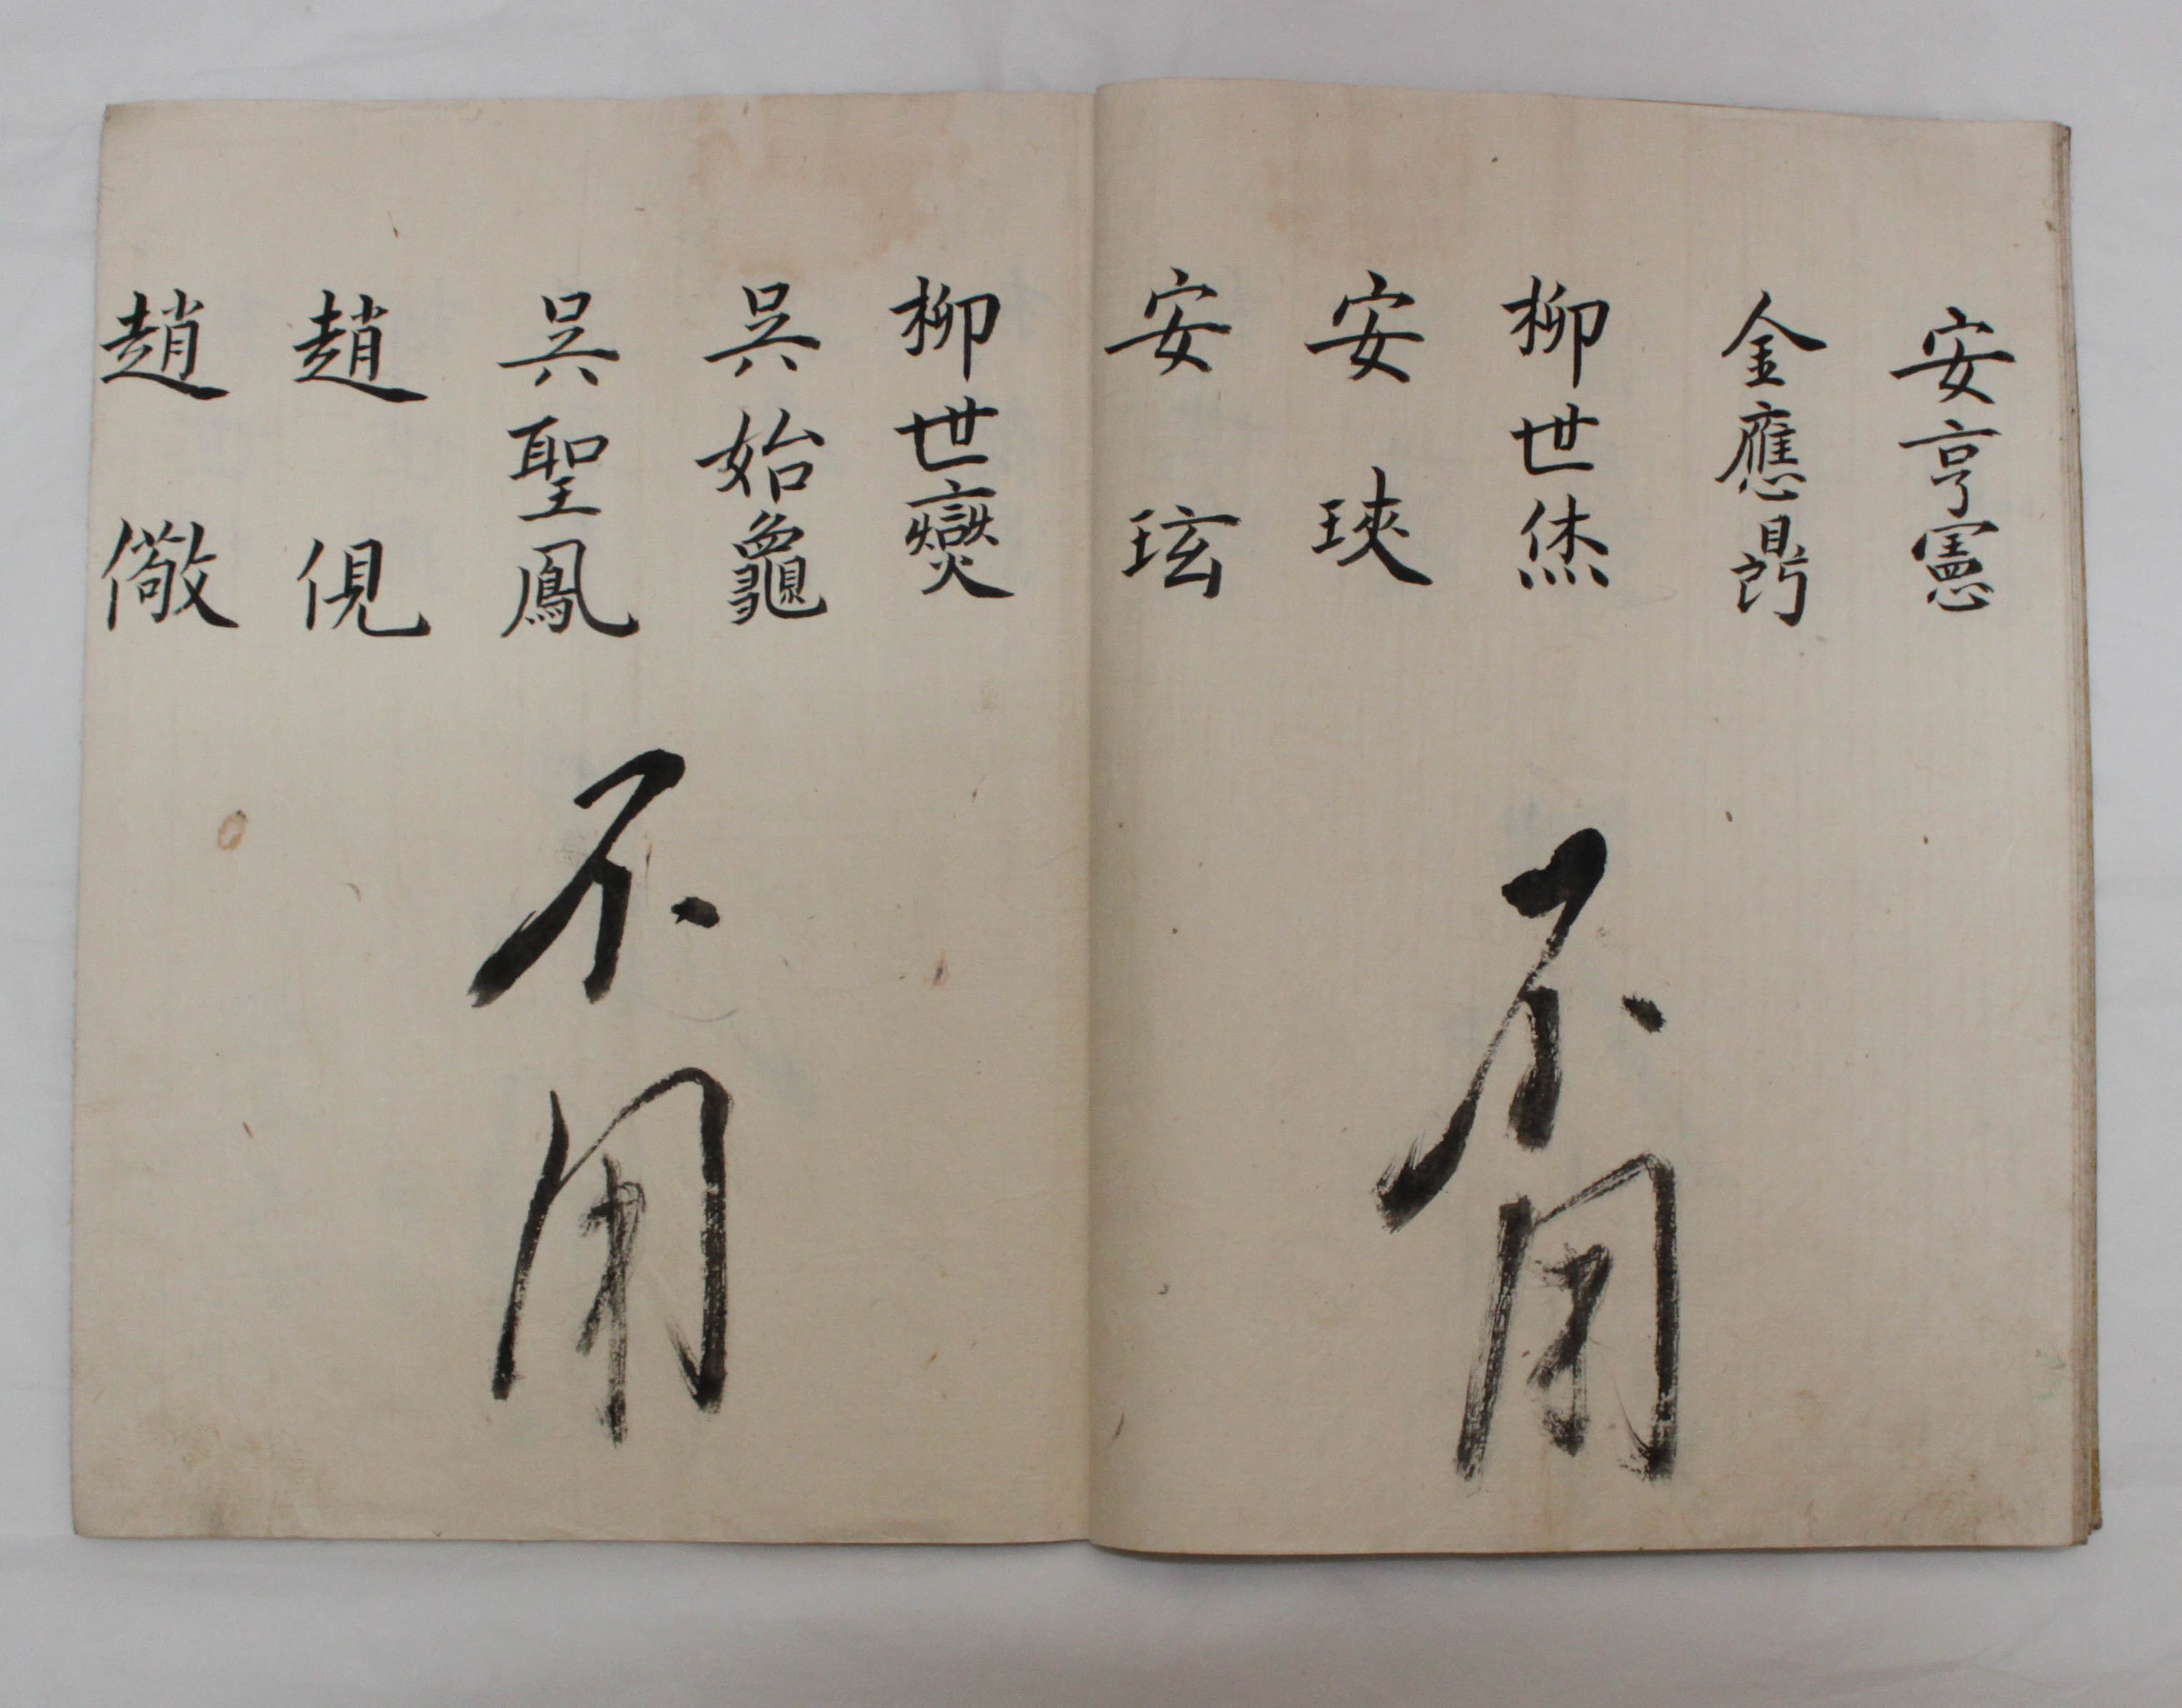 安亨憲
金應鼎
柳世烋
安瑛
安玹
不用
柳世燮
吳始龜
吳聖鳳
趙俔
趙儆
不用